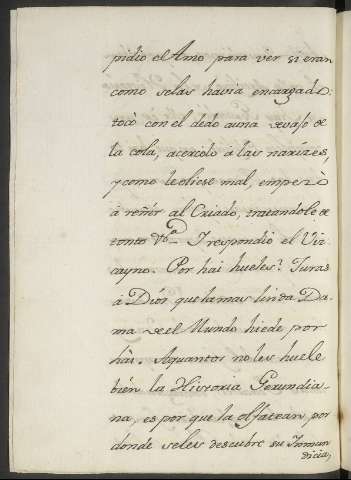 pidio el Amo para ver si eran
como selas havia encargado:
tocò con el dedo auna devajo de
la cola, acercolo à las narizes,
y como le oliese mal, empezò
à reñir al Criado, tratandole de
tonto &ª. I respondiò el Viz-
cayno. Por hai hueles? Juras
à Dios que la mas linda Da-
ma de el Mundo hiede por
hài. A quantos no les huele
bien la Historia Gerundia-
na, es por que la olfatean por
donde seles descubre su Inmun
dicia,